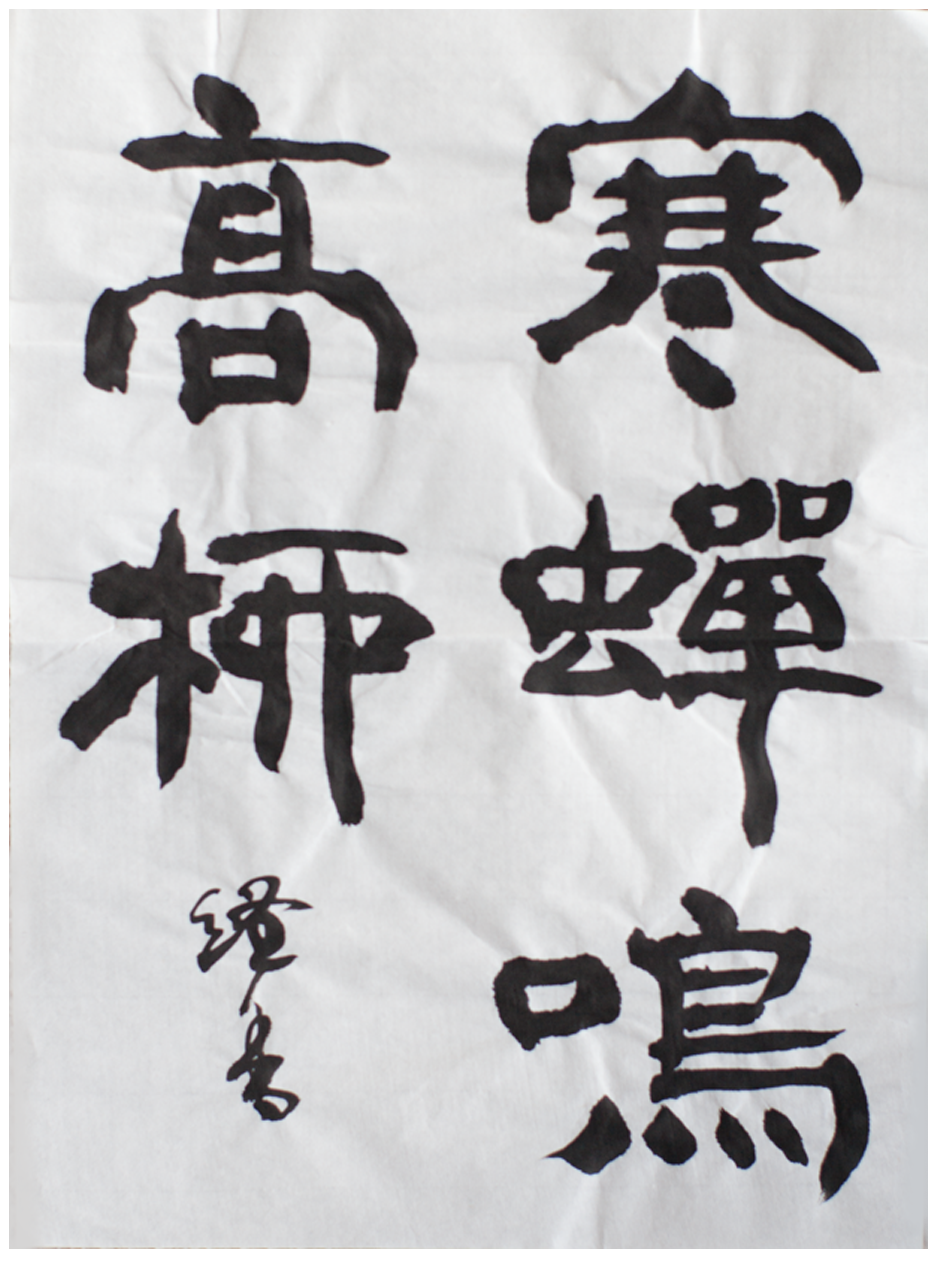 寒蟬鳴
高柳
書